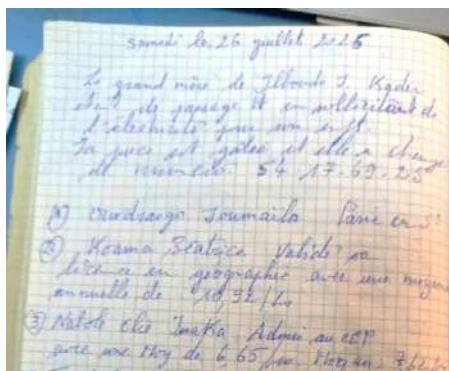 samedi le 26 juillet 2025
La grand mère de Ilboudo J. Kader
était de passage et en sollicitant de
l'électricité pour son enft.
Sa puce est gatée et elle a changé
de numéro. 54 17.69.25
① Ouedraogo Soumaila Passé en
② Koama Béatrice Validé sa
licence en géographie avec une moyenne
annuelle de 10,92/20
③ Natole Elie Admis au CEP
avec une Moy de 6,65